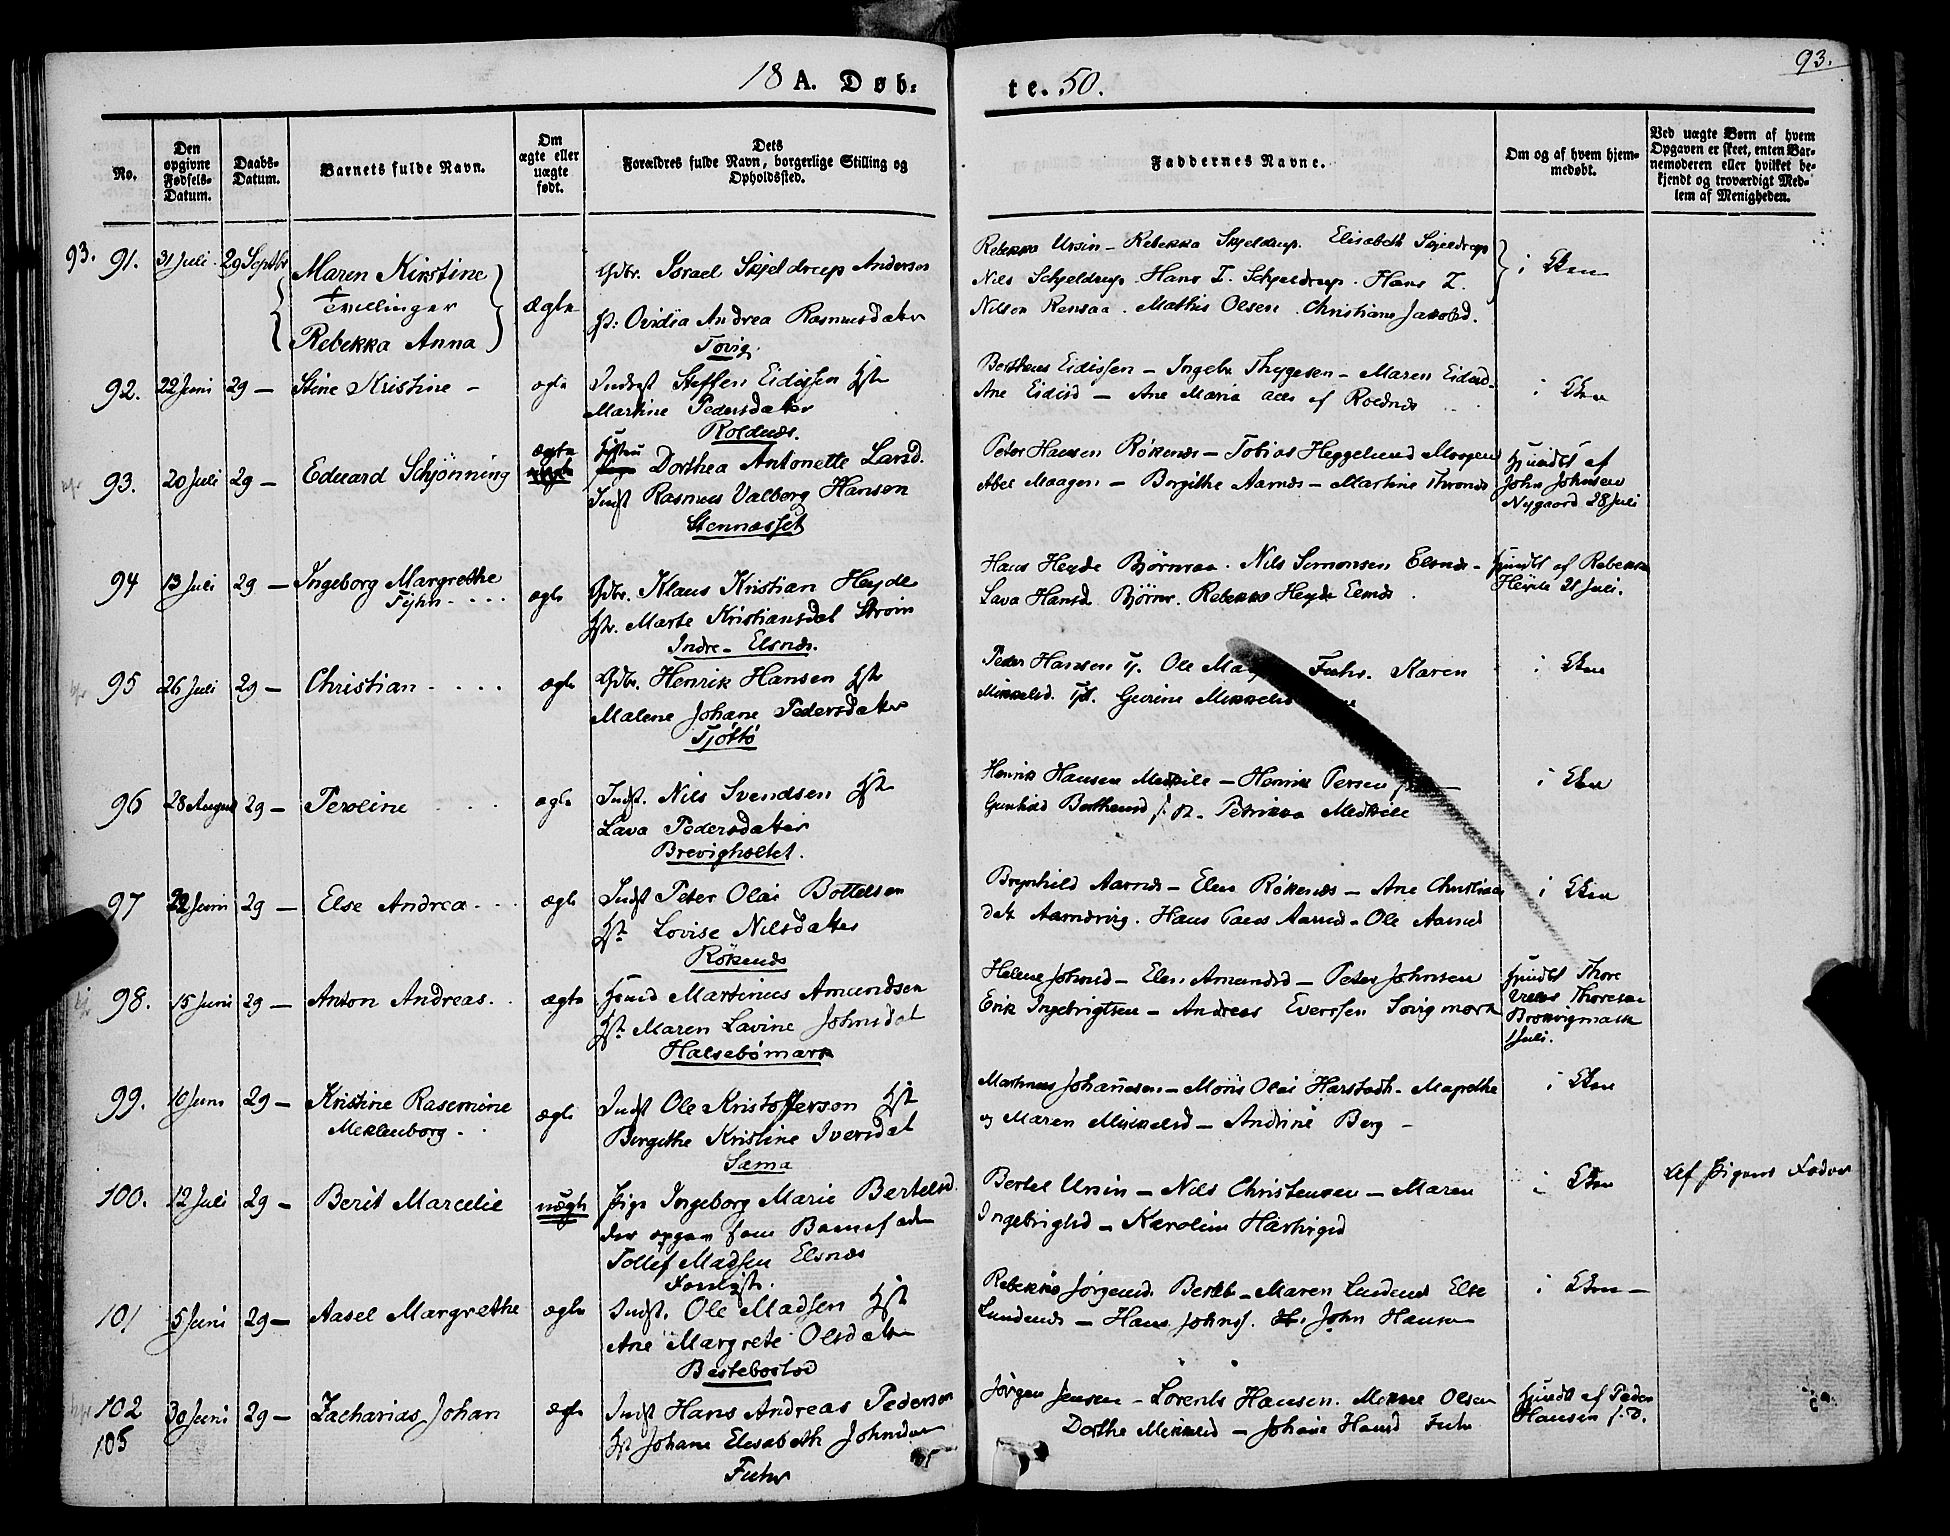 93.
18 A. Døb-
te. 50.
No.
Den opgivne Fødsels-Datum.
Daabs-Datum.
Barnets fulde Navn.
Om ægte eller uægte født.
Dets Forældres fulde Navn, borgerlige Stilling og Opholdssted.
Faddernes Navne.
Om og af hvem hjem-medøbt.
Ved uægte Børn af hvem Opgaven er skeet, enten Bar-nemoderen eller hvilket be-kjendt og troværdigt Med-lem af Menigheden.
93. 91. 31 Juli 29 Septbr
Maren Kirstine
Tvillinger
Rebekka Anna
Ægte
Gdbr. Israel Skjeldrup Andersen
Hst: Ovidia Andrea Rasmusdatter
Tovig
Rebekka Ursin - Rebekka Skjeldrup. Elisabeth Skjeldrup
Nils Schjeldrup. Hans Z. Schjeldrup. Hans Z.
Nilsen Rensaa. Mathis Olsen. Christiane Jakobsd.
i Kken
92. 22 Juni 29 - Stine Kristine - ægte
Indst Steffen Eidissen Hst
Martine Pedersdatter
Roldnæs.
Bertheus Eidissen - Ingebr Thygesen - Maren Eidisd.
Ane Eidisd - Ane Maria alle af Roldnæs
i Kken
93. 20 Juli 29 - Eduard Schjönning ægte
Hustru Dorthea Antonette Larsd.
Indst Rasmus Valberg Hansen
Stennæsset
Peter Hansen Rökenæs - Tobias Heggelund Maagen
Abel Maagen - Birgithe Aarnæs - Martine Thronds
Hjmdbt af
John Johnsen
Nygaard 28 Juli
94 13 Juli 29 - Ingeborg Margrethe
Fyhn ægte
Gdbr. Klaus Kristian Heyde
Hst. Marte Kristiansdat Strøm
Indre - Elsnæs.
Hans Heyde Bjørnraa. Nils Simonsen Elsnæs -
Lava Hansd Bjørnr. Rebekka Heyde Elsnæs
Hjmdbt af Rebekka
Heyde 21 Juli.
95 26 Juli 29 - Christian ægte
Gdbr. Henrik Hansen Hst
Malene Johane Pedersdatter
Tjöttö
Peder Hansen Tj. Ole Fuhs. Karen
Mikkelsd. Tj. Gurine Mikkelsd
i Kken
96 28 August 29 - Peroline ægte
Indst. Nils Svendsen Hst
Lava Pedersdatter
Brevigholtet.
Henrik Hansen Medkile - Henrik Persen
Gunhild Bertheusd Petrikka Medkile
i Kken
97 22 Juni 29 - Else Andrea ægte
Indst Peter Olai Bottelsen
Hst Lovise Nilsdatter
Rökenæs
Brynhild Aarnæs - Elen Rökenæs - Ane Christians
dat. Aarnæsvig. Hans Aarnæs - Ole Aarnæs
i Kken
98. 15 Juni 29 - Anton Andreas. ægte
Hsmd Martinus Amundsen
Hst Maren Lavine Johnsdat
Halsebömark
Helene Johnsd - Elen Amundsd - Peter Johnsen
Erik Ingebrigtsen - Andreas Everssen Sörvigmark
Hjmdbt Thore
Thoresen
Brokvigmark
Juli.
99. 10 Juni 29 - Kristine Rasemine
Meklenborg. ægte
Indst Ole Kristofferson Hst
Birgithe Kristine Iversdat
Sama
Martinus Johansen - Mons Olai Harstadh. Magrethe
og Maren Mikkelsd - Andrine Berg -
i Kken
100. 12 Juli 29 - Berit Marcelie uægte
Pige Ingeborg Marie Bertelsd.
der opgav som Barnefader
Tollef Madsen Elsnæs
Bertel Ursin - Nils Christensen - Maren
Ingebrigtsd - Karoline Hartvigsd
i Kken
Af Pigens Fader
101 5 Juni 29 - Aasel Margrethe ægte
Indst. Ole Madsen Hst
Ane Margrete Olsdatter
Bestebostad
Rebekka Jørgensd Besteb - Maren Lundenæs Else
Lundenæs - Hans Johns. John Hansen
i Kken -
102 30 Juni 29 - Zacharias Johan ægte
105
Indst Hans Andreas Pedersen
Hst Johane Elesabeth Johnsdat
Fuhs
Jörgen Jensen - Lorents Hansen. Mikkel Olsen
Dorthe Mikkelsd - Johane Hansd Fuhs
Hjmdbt af Peder
Hansen s. D.